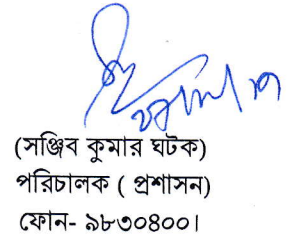 (সঞ্জিব কুমার ঘটক)
পরিচালক ( প্রশাসন)
ফোন- ৯৮৩০৪০০।